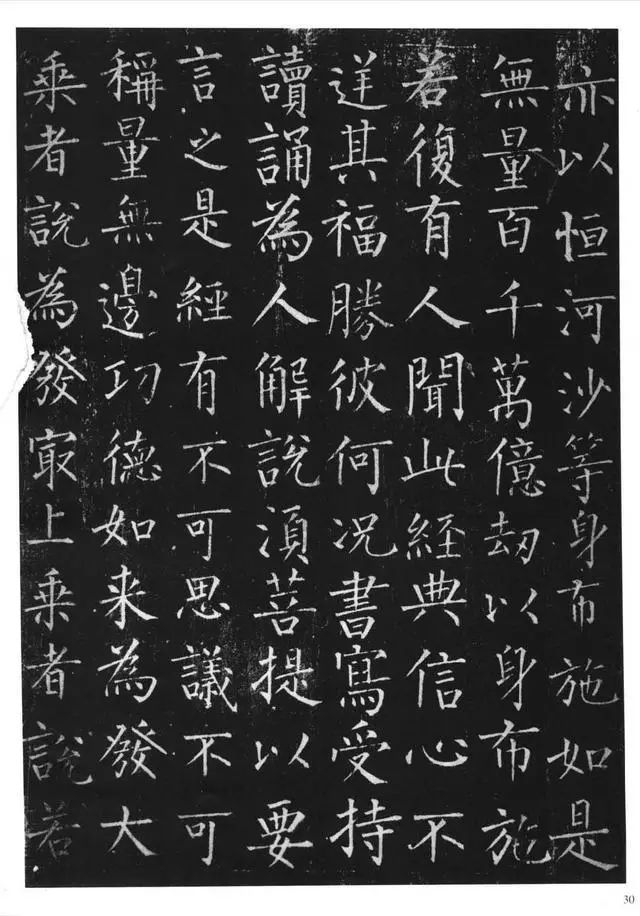 亦以恒河沙等身布施如是
無量百千萬億劫以身布施
若復有人聞此經典信心不
逆其福勝彼何況書寫受持
讀誦為人解說湏菩提以要
言之是經有不可思議不可
稱量無邊功德如来為發大
乘者說為發㝡上乘者說若
30